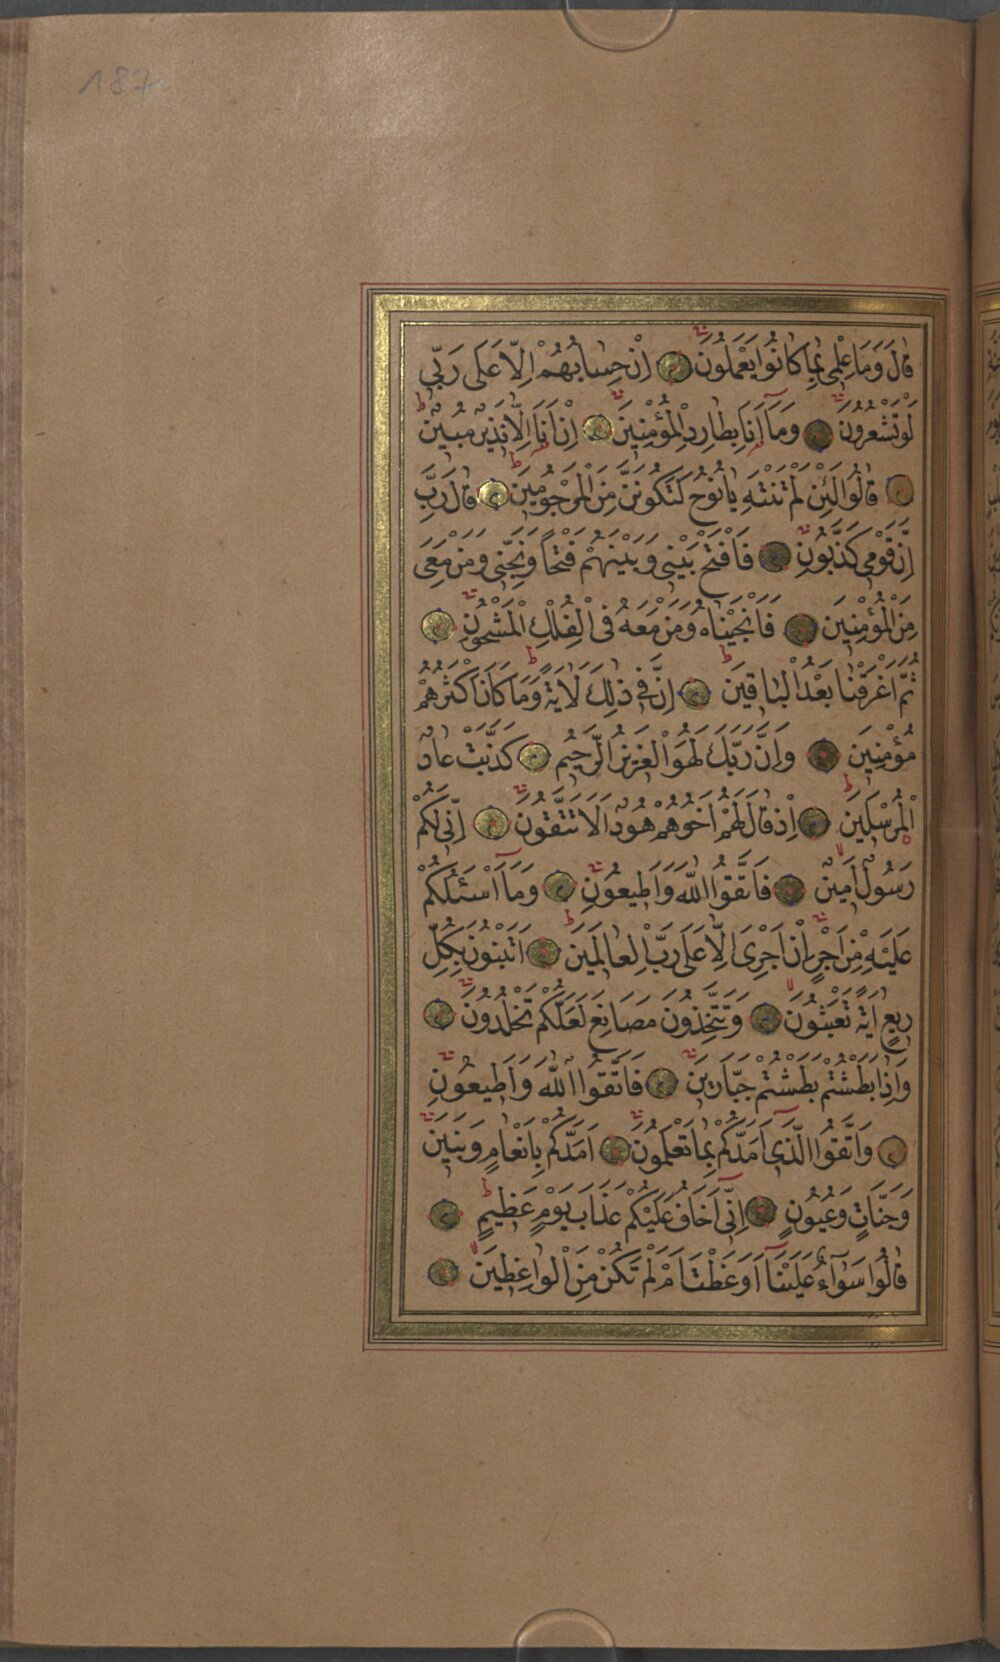 187
قَالَ وَمَا عِلْمِى بِمَا كَانُوا يَعْمَلُونَ اِنْ حِسَابُهُمْ اِلَّا عَلَى رَبِّى
لَوْ تَشْعُرُونَ وَمَآ اَنَا بِطَارِدِ الْمُؤْمِنِينَ اِنْ اَنَا اِلَّا نَذِيرٌ مُبِينٌ
قَالُوا لَئِنْ لَمْ تَنْتَهِ يَانُوحُ لَتَكُونَنَّ مِنَ الْمَرْجُومِينَ قَالَ رَبِّ
اِنَّ قَوْمِى كَذَّبُونِ فَافْتَحْ بَيْنِى وَبَيْنَهُمْ فَتْحًا وَنَجِّنِى وَمَنْ مَعِىَ
مِنَ الْمُؤْمِنِينَ فَاَنْجَيْنَاهُ وَمَنْ مَعَهُ فِى الْفُلْكِ الْمَشْحُونِ
ثُمَّ اَغْرَقْنَا بَعْدُ الْبَاقِينَ اِنَّ فِى ذٰلِكَ لَاٰيَةً وَمَا كَانَ اَكْثَرُهُمْ
مُؤْمِنِينَ وَاِنَّ رَبَّكَ لَهُوَ الْعَزِيزُ الرَّحِيمُ كَذَّبَتْ عَادٌ
الْمُرْسَلِينَ اِذْ قَالَ لَهُمْ اَخُوهُمْ هُودٌ اَلَا تَتَّقُونَ اِنِّى لَكُمْ
رَسُولٌ اَمِينٌ فَاتَّقُوا اللّٰهَ وَاَطِيعُونِ وَمَآ اَسْئَلُكُمْ
عَلَيْهِ مِنْ اَجْرٍ اِنْ اَجْرِىَ اِلَّا عَلَى رَبِّ الْعَالَمِينَ اَتَبْنُونَ بِكُلِّ
رِيعٍ اٰيَةً تَعْبَثُونَ وَتَتَّخِذُونَ مَصَانِعَ لَعَلَّكُمْ تَخْلُدُونَ
وَاِذَا بَطَشْتُمْ بَطَشْتُمْ جَبَّارِينَ فَاتَّقُوا اللّٰهَ وَاَطِيعُونِ
وَاتَّقُوا الَّذِىٓ اَمَدَّكُمْ بِمَا تَعْلَمُونَ اَمَدَّكُمْ بِاَنْعَامٍ وَبَنِينَ
وَجَنَّاتٍ وَعُيُونٍ اِنِّىٓ اَخَافُ عَلَيْكُمْ عَذَابَ يَوْمٍ عَظِيمٍ
قَالُوا سَوَآءٌ عَلَيْنَآ اَوَعَظْتَ اَمْ لَمْ تَكُنْ مِنَ الْوَاعِظِينَ